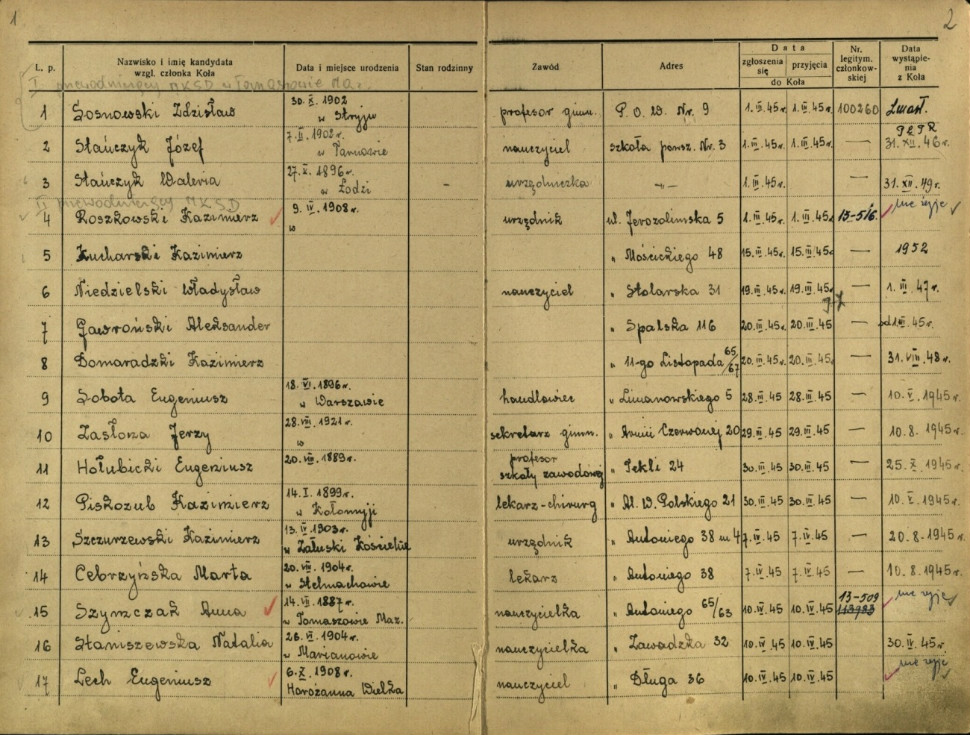 1
2
L. p.
Nazwisko i imię kandydata
wzgl. członka Koła
Data i miejsce urodzenia
Stan rodzinny
Zawód
Adres
Data
zgłoszenia się
przyjęcia
do Koła
Nr. legitym. członkowskiej
Data wystąpienia z Koła
I przewodniczący MKSD w Tomaszowie Ma.
1 Sosnowski Zdzisław 30. X. 1902 w Stryju profesor gimn. P. O. W. Nr. 9 1. III. 45r. 1. III. 45r. 100260 Zmarł.
2 Stańczyk Józef 7. II. 1902r. w Tarnowie nauczyciel szkoła powsz. Nr. 3 1. III. 45r. 1. III. 45r. — PZPR 31. XII. 46r.
3 Stańczyk Waleria 27. X. 1896r. w Łodzi - urzędniczka —„— 1. III. 45r. — 31. XII. 49r.
II przewodniczący MKSD
4 Roszkowski Kazimierz 9. IV. 1908r. w urzędnik ul. Jerozolimska 5 1. III. 45r. 1. III. 45r. 13-516 nie żyje
5 Kucharski Kazimierz „ Mościckiego 48 15. III. 45r. 15. III. 45r. — 1952
6 Niedzielski Władysław nauczyciel „ Stolarska 31 19. III. 45r. 19. III. 45r. — 1. III. 47r.
7 Gawroński Aleksander „ Spalska 116 20. III. 45r. 20. III. 45 — od 1. III. 45r.
8 Domaradzki Kazimierz „ 11-go Listopada 65/67 20. III. 45r. 20. III. 45r. — 31. VIII. 48r.
9 Sobota Eugeniusz 18. VI. 1896r. w Warszawie handlowiec „ Limanowskiego 5 28. III. 45 28. III. 45r. — 10. X. 1945r.
10 Zasłona Jerzy 28. VII. 1921r. w sekretarz gimn. „ Armii Czerwonej 20 29. III. 45 29. III. 45r. — 10. 8. 1945r.
11 Hołubicki Eugeniusz 20. VIII. 1889r. profesor szkoły zawodowej „ Tekli 24 30. III. 45 30. III. 45r. — 25. X. 1945r.
12 Piskozub Kazimierz 14. I. 1899r. w Kołomyji lekarz-chirurg „ Al. W. Polskiego 21 30. III. 45 30. III. 45 — 10. X. 1945r.
13 Szczurzewski Kazimierz 13. IV. 1903r. w Załuski Kościelne urzędnik „ Antoniego 38 m 4 7. IV. 45 7. IV. 45 — 20. 8. 1945r.
14 Cebrzyńska Marta 20. VII. 1904r. w Stelmachowie lekarz „ Antoniego 38 7. IV. 45 7. IV. 45 — 10. 8. 1945r.
15 Szymczak Anna 14. VII. 1887r. w Tomaszowie Maz. nauczycielka „ Antoniego 65/63 10. IV. 45 10. IV. 45 13-509 113983 nie żyje
16 Staniszewska Natalia 26. VI. 1904r. w Marianowie nauczycielka „ Zawadzka 32 10. IV. 45 10. IV. 45 — 30. IV. 45r.
17 Lech Eugeniusz 6. X. 1908r. Horozanna Wielka nauczyciel „ Długa 36 10. IV. 45 10. IV. 45 — nie żyje